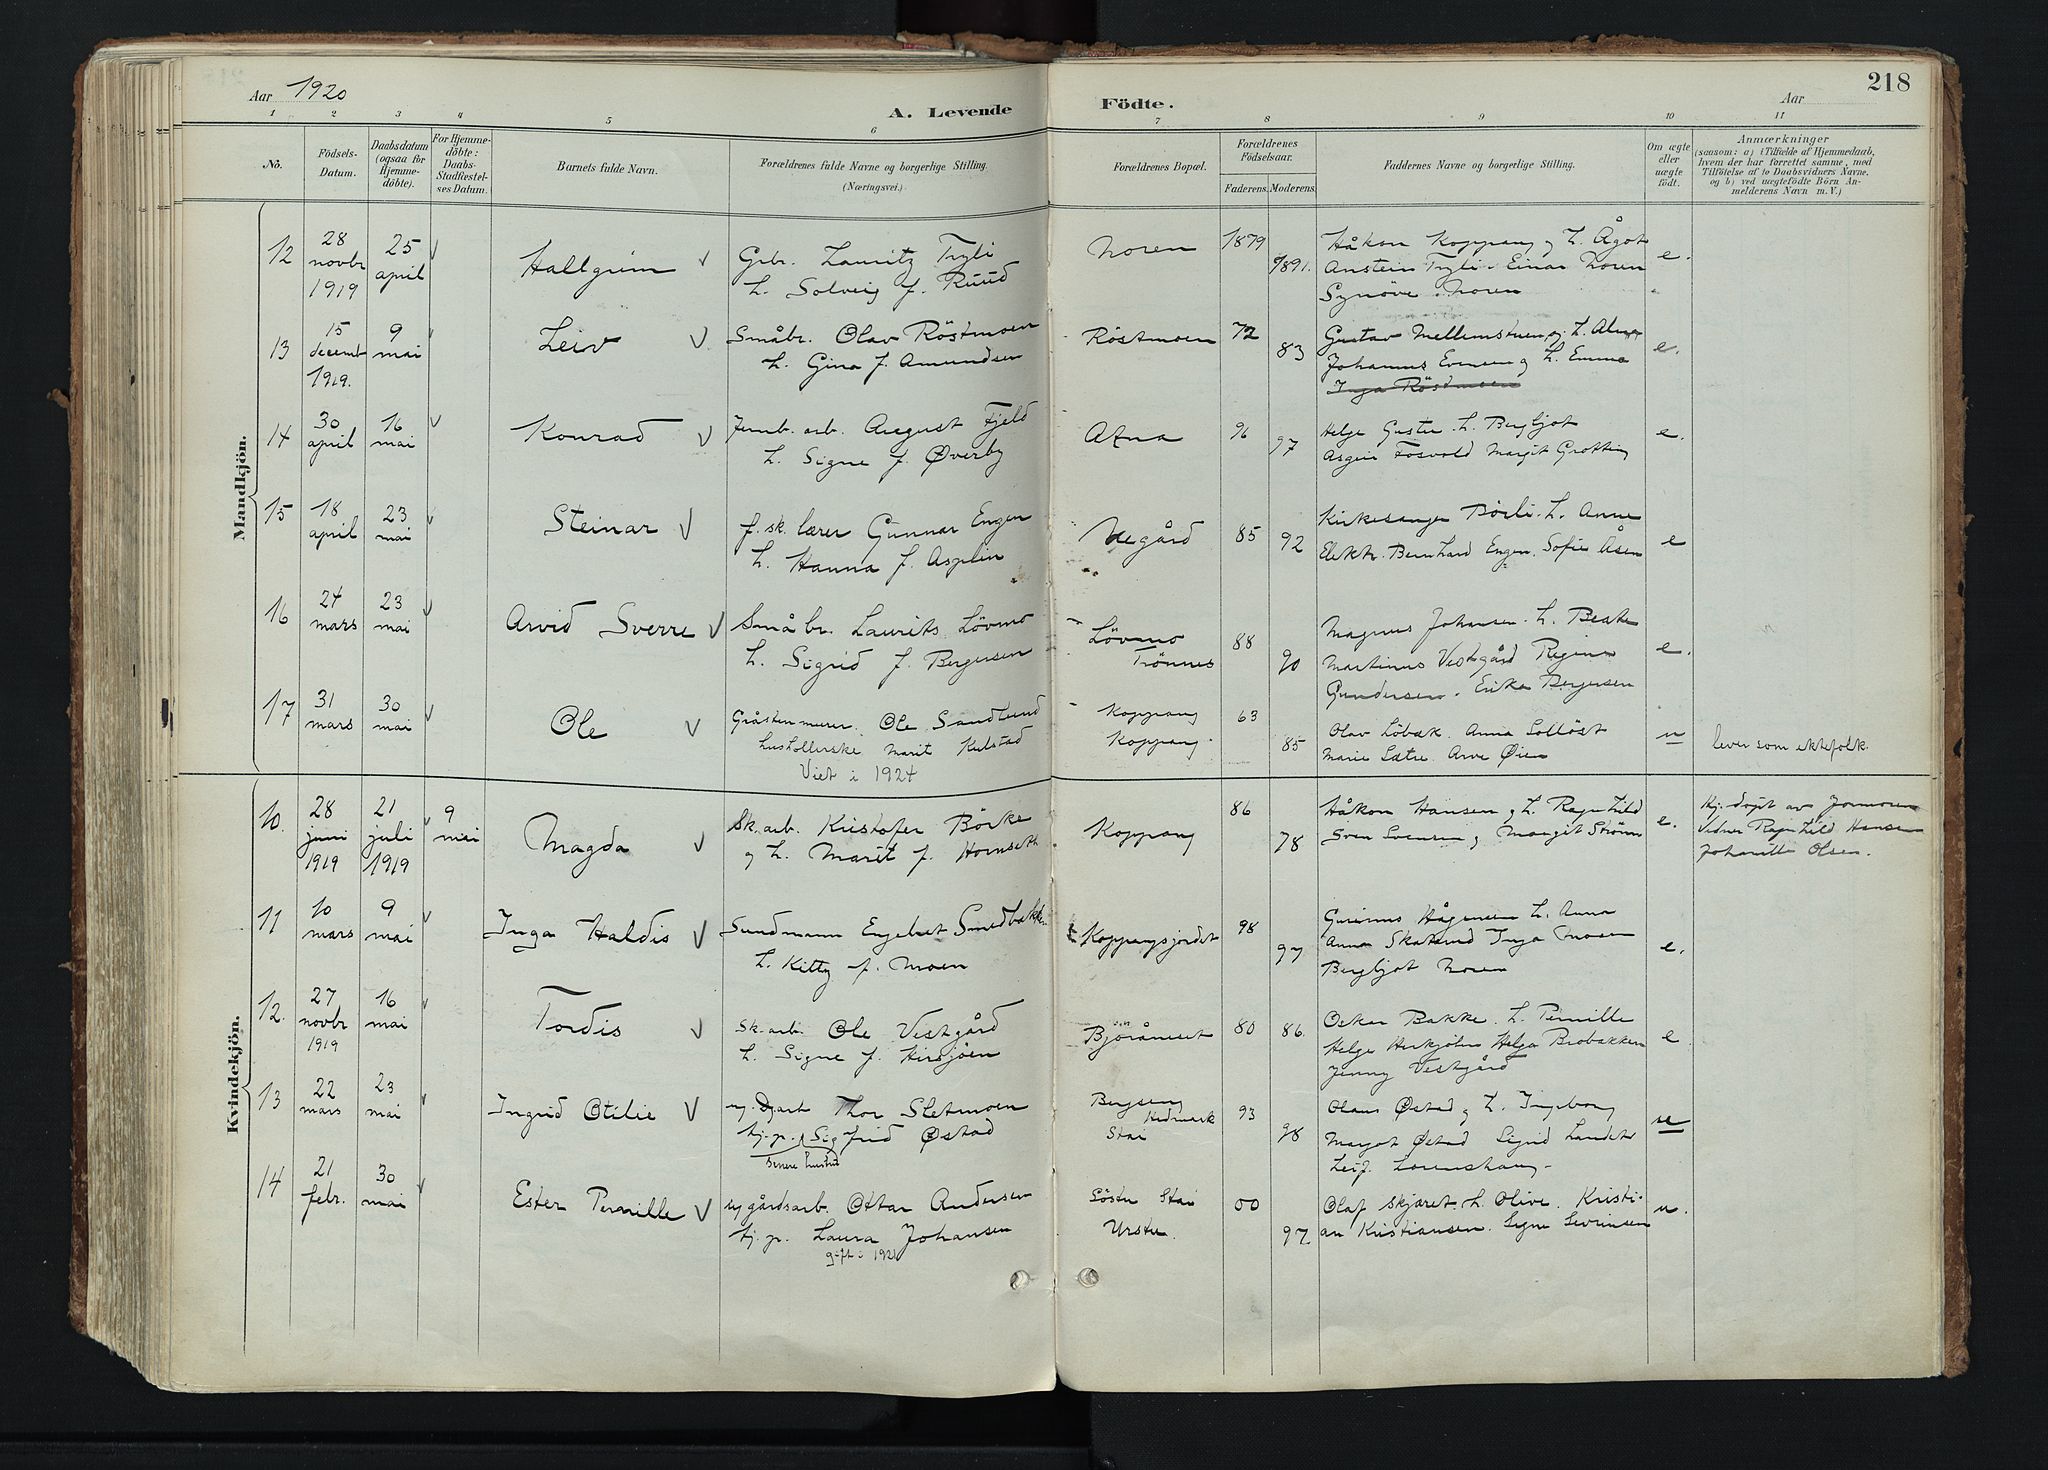 Aar 1920
A. Levende
Födte.
Aar
218
1 2 3 4 5 6 7 8 9 10 11
No.
Födsels-
Datum.
Daabsdatum
(ogsaa for
Hjemme-
döbte).
For Hjemme-
döbte:
Daabs-
Stadfæstel-
ses Datum.
Barnets fulde Navn.
Forældrenes fulde Navne og borgerlige Stilling.
(Næringsvei.)
Forældrenes Bopæl.
Forældrenes
Födselsaar.
Faderens. Moderens.
Faddernes Navne og borgerlige Stilling.
Om ægte
eller
uægte
födt.
Anmærkninger
(saasom: a) i Tilfælde af Hjemmedaab,
hvem der har forrettet samme, med
Tilföielse af to Daabsvidners Navne,
og b) ved uægtefödte Börn An-
melderens Navn m. V.)
Mandkjön.
12
28
novbr
1919
25
april
Hallgrim
Grbr. Lauritz Tryli
h. Solveig f. Ruud
Noren
1879
1891.
Håkon Koppang og h. Ågot
Anstein Tryli. Einar Noren
Synöve Noren
e.
13
15
decembr
1919.
9
mai
Leiv
Småbr. Olav Röstmoen
h. Gina f. Amundsen
Röstmoen
72
83
Gustav Mellemstuen og h. Alma
Johannes Evensen og h. Emma
Inga Röstmoen
e.
14
30
april
16
mai
Konrad
Jernb. arb. August Fjeld
h. Signe f. Øverby
Atna
96
97
Helge h. Bergljot
Fosvold Margit Grötting
e.
15
18
april
23
mai
Steinar
f. sk. lærer Gunnar Engen
h. Hanna f. Asplin
Negård
85
92
Kirkesanger Börli. h. Anne
Elektr. Bernhard Engen. Sofie Åsen
e
16
24
mars
23
mai
Arvid Sverre
Småbr. Laurits Lövmo
h. Sigrid f. Bergersen
Lövmo
Trönnes
88
90
Magnus Johansen. h. Beate
Martinus Vestgård Regine
Gundersen. Erika Bergersen
e.
17
31
mars
30
mai
Ole
Gråstenmurer Ole Sandlund
husholderske Marit Kulstad
Viet i 1924
Koppang
Koppang.
63
85
Olav Löbak. Anna Solløst
Marie Sætre. Arve Øien
u
lever som ektefolk.
Kvindekjön.
10.
28
juni
1919
21
juli
1919
9
mai
Magda
Sk. arb. Kristofer Börke
og h. Marit f. Hornseth
Koppang
86
78
Håkon Hansen og h. Ragnhild
Sven Svensen og Margit Ström
e.
Hj. döpt av Jormoren
Vidner Ragnhild Hansen
Olsen.
11
10
mars
9
mai
Inga Haldis
Sundmann Engebret Smedbakken
h. Kitty f. Moen
Koppangsjordet
98
97
Hågensen h. Anna
Anna Inga Moen
Bergljot Noren
e.
12.
27
novbr
1919
16
mai
Tordis
Sk. arb. Ole Vestgård
h. Signe f. Hirsjöen
Björåneset
80
86.
Oskar Bakke. h. Pernille
Helge Helga Brobakken
Jenny Vestgård
e
13
22
mars
23
mai
Ingrid Otilie
Thor Sletmoen
tj. p. Sigfrid Østad
senere hustru
Bergseng
Hedmark
Stai
93
98
Olaus Østad og h. Ingeborg
Margot Østad Sigrid Landet
Leif Lorenshaug.
u
14
21
febr.
30
mai
Ester Pernille
ug gårdsarb. Ottar Andersen
tj. p. Laura Johansen
gift i 1921
Söstu Stai
Urstu.
00
97
Olaf Skjæret. h. Olive. Kristi-
an Kristiansen. Signe Sevrinsen
u.